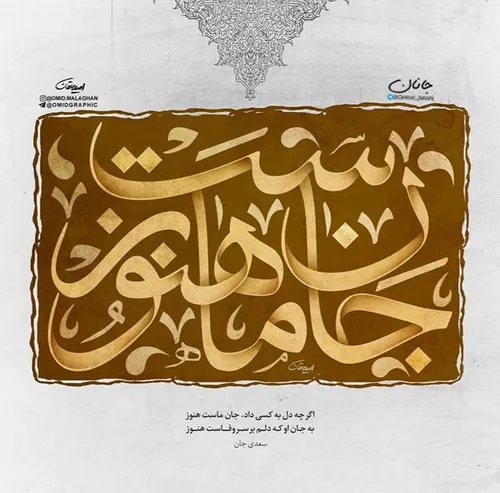 جانان
@OMID.MALAGHAN
@OMIDGRAPHIC
جان ماست هنوز
اگر چه دل به کسی داد، جان ماست هنوز
به جان او که دلم بر سر وفاست هنوز
سعدی جان